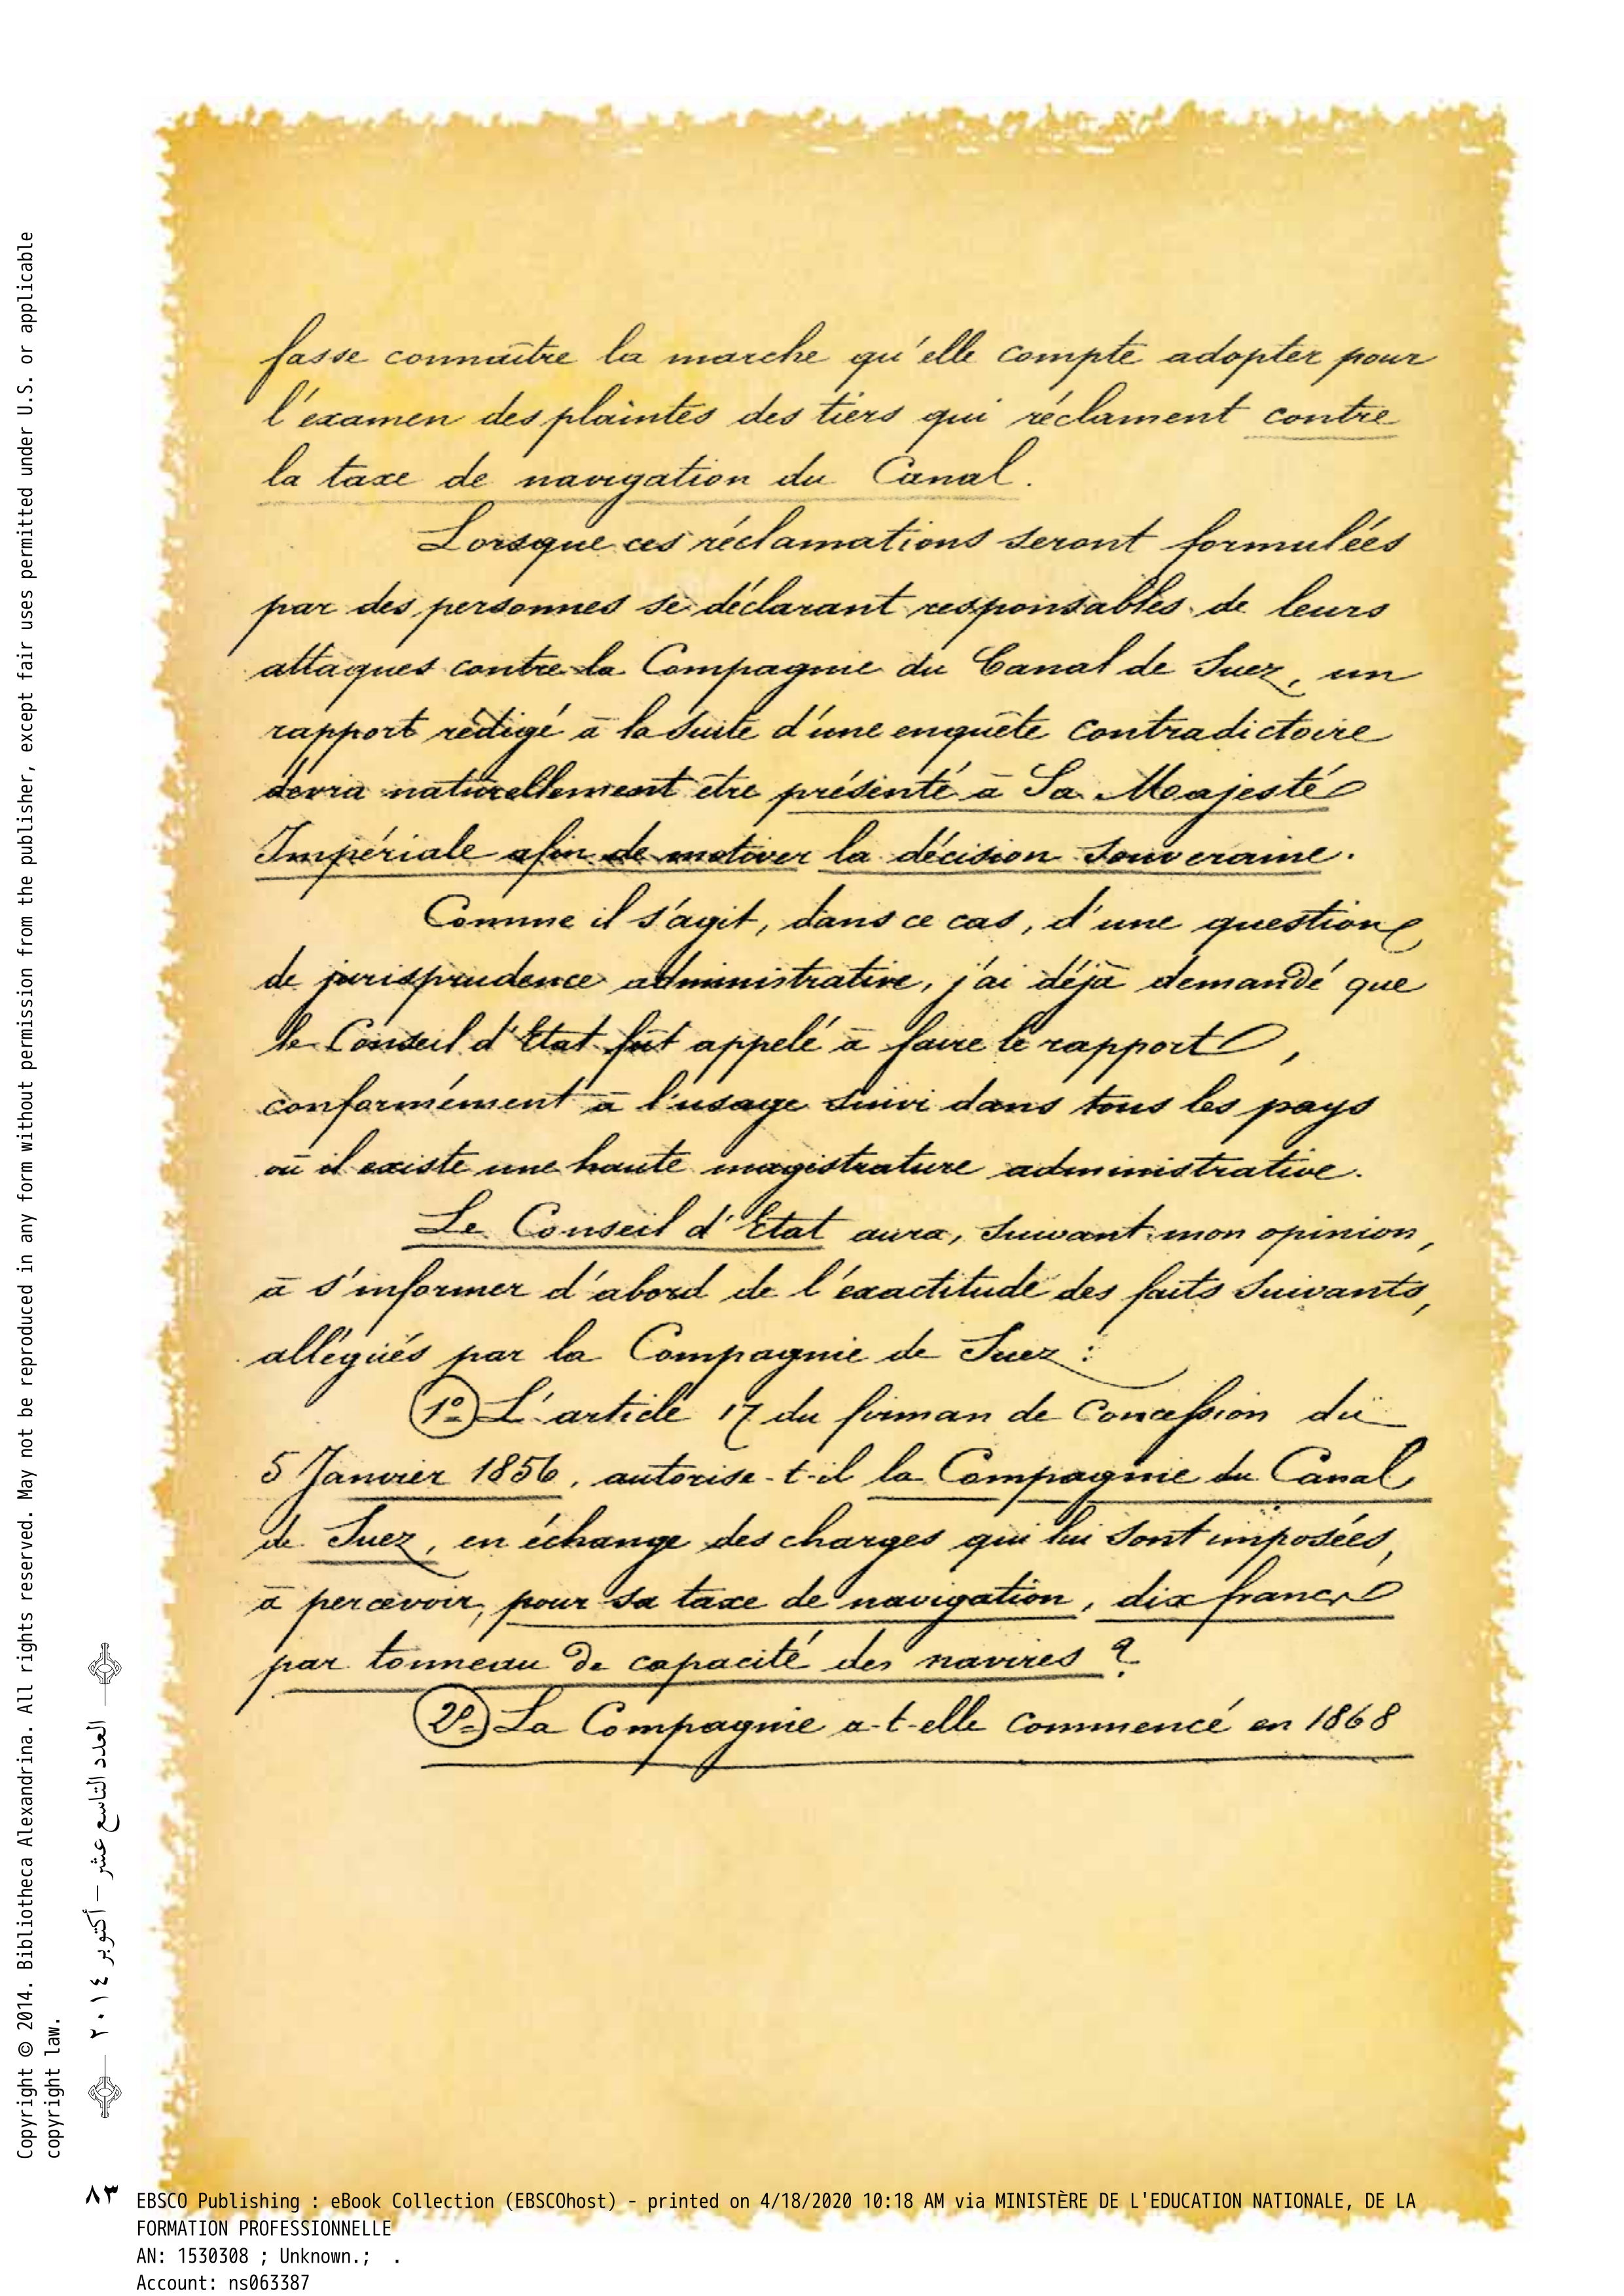 fasse connaître la marche qu'elle compte adopter pour
l'examen des plaintes des tiers qui réclament contre
la taxe de navigation du Canal.
Lorsque ces réclamations seront formulées
par des personnes se déclarant responsables de leurs
attaques contre la Compagnie du Canal de Suez, un
rapport rédigé à la suite d'une enquête contradictoire
devra naturellement être présenté à Sa Majesté
Impériale afin de motiver la décision Souveraine.
Comme il s'agit, dans ce cas, d'une question
de jurisprudence administrative, j'ai déjà demandé que
le Conseil d'Etat fût appelé à faire le rapport,
conformément à l'usage suivi dans tous les pays
où il existe une haute magistrature administrative.
Le Conseil d'Etat aura, suivant mon opinion,
à s'informer d'abord de l'exactitude des faits suivants,
allégués par la Compagnie de Suez :
1º L'article 17 du firman de Concession du
5 Janvier 1856, autorise-t-il la Compagnie du Canal
de Suez, en échange des charges qui lui sont imposées,
à percevoir, pour sa taxe de navigation, dix francs
par tonneau de capacité des navires ?
2º La Compagnie a-t-elle commencé en 1868
Copyright © 2014. Bibliotheca Alexandrina. All rights reserved. May not be reproduced in any form without permission from the publisher, except fair uses permitted under U.S. or applicable
copyright law.
العدد التاسع عشر – أكتوبر ٢٠١٤
٨٣
EBSCO Publishing : eBook Collection (EBSCOhost) - printed on 4/18/2020 10:18 AM via MINISTÈRE DE L'EDUCATION NATIONALE, DE LA
FORMATION PROFESSIONNELLE
AN: 1530308 ; Unknown.; .
Account: ns063387